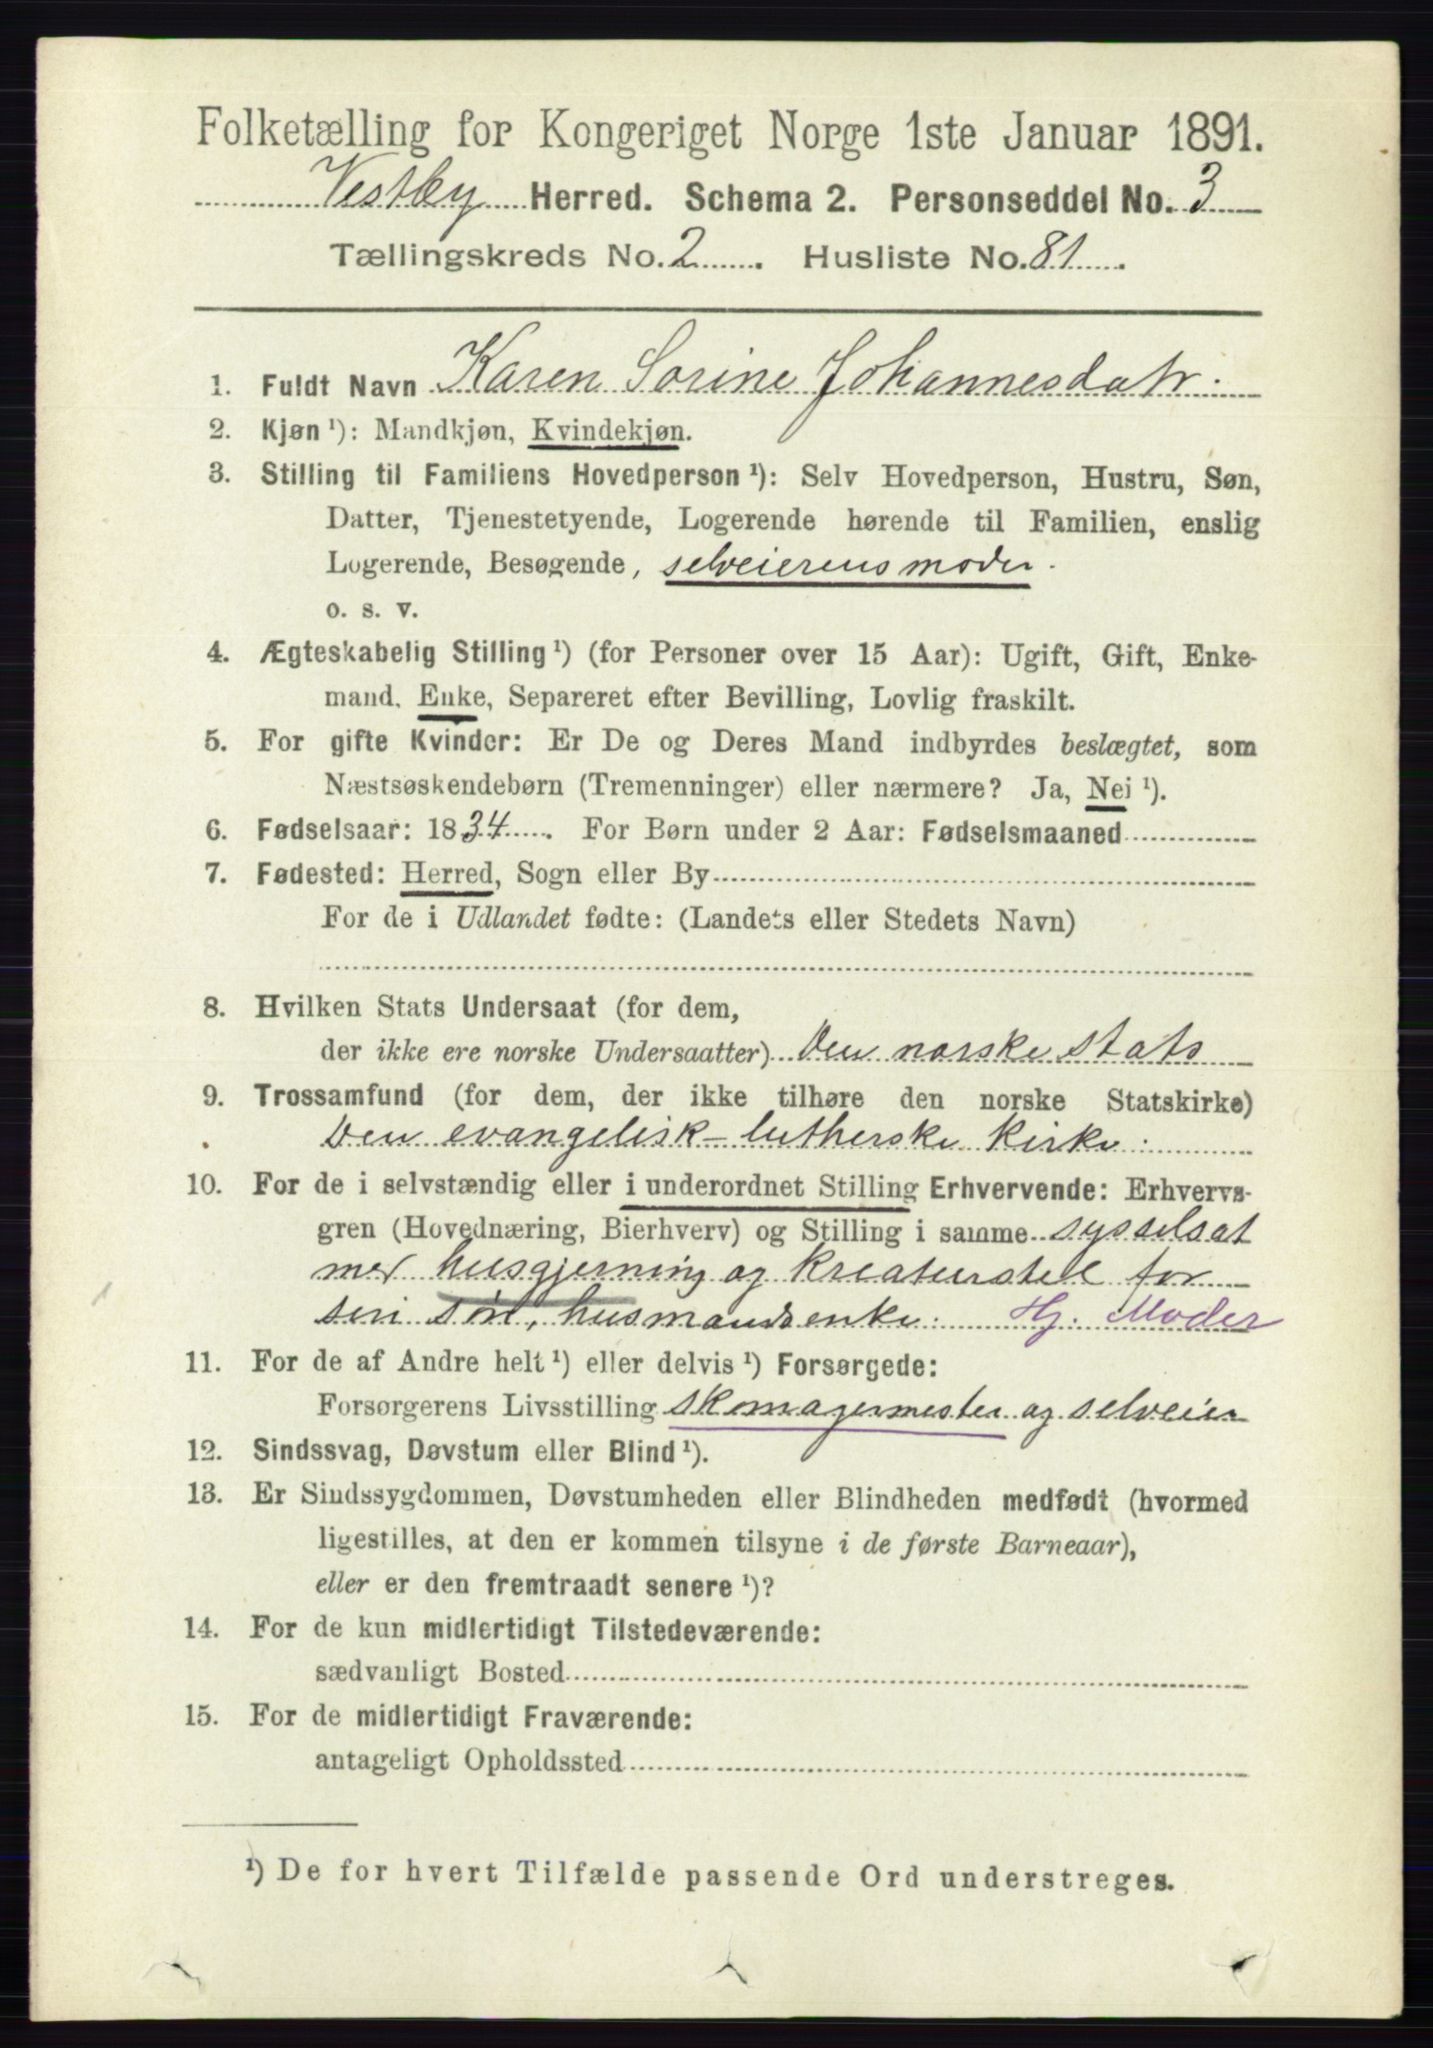 Folketælling for Kongeriget Norge 1ste Januar 1891.
Vestby Herred. Schema 2. Personseddel No. 3
Tællingskreds No. 2. Husliste No. 81.
1. Fuldt Navn Karen Sorine Johannesdatr.
2. Kjøn ¹): Mandkjøn, Kvindekjøn.
3. Stilling til Familiens Hovedperson ¹): Selv Hovedperson, Hustru, Søn,
Datter, Tjenestetyende, Logerende hørende til Familien, enslig
Logerende, Besøgende, selveierens moder.
o. s. v.
4. Ægteskabelig Stilling ¹) (for Personer over 15 Aar): Ugift, Gift, Enke-
mand, Enke, Separeret efter Bevilling, Lovlig fraskilt.
5. For gifte Kvinder: Er De og Deres Mand indbyrdes beslægtet, som
Næstsøskendebørn (Tremenninger) eller nærmere? Ja, Nei ¹).
6. Fødselsaar: 1834. For Børn under 2 Aar: Fødselsmaaned
7. Fødested: Herred, Sogn eller By
For de i Udlandet fødte: (Landets eller Stedets Navn)
8. Hvilken Stats Undersaat (for dem,
der ikke ere norske Undersaatter) Den norske stats
9. Trossamfund (for dem, der ikke tilhøre den norske Statskirke)
Den evangelisk-lutherske kirke.
10. For de i selvstændig eller i underordnet Stilling Erhvervende: Erhvervs-
gren (Hovednæring, Bierhverv) og Stilling i samme sysselsat
med husgjerning og kreaturstel for
sin søn, husmandsenke. Hj. Moder
11. For de af Andre helt ¹) eller delvis ¹) Forsørgede:
Forsørgerens Livsstilling skomagermester og selveier
12. Sindssvag, Døvstum eller Blind ¹).
13. Er Sindssygdommen, Døvstumheden eller Blindheden medfødt (hvormed
ligestilles, at den er kommen tilsyne i de første Barneaar),
eller er den fremtraadt senere ¹)?
14. For de kun midlertidigt Tilstedeværende:
sædvanligt Bosted
15. For de midlertidigt Fraværende:
antageligt Opholdssted
¹) De for hvert Tilfælde passende Ord understreges.